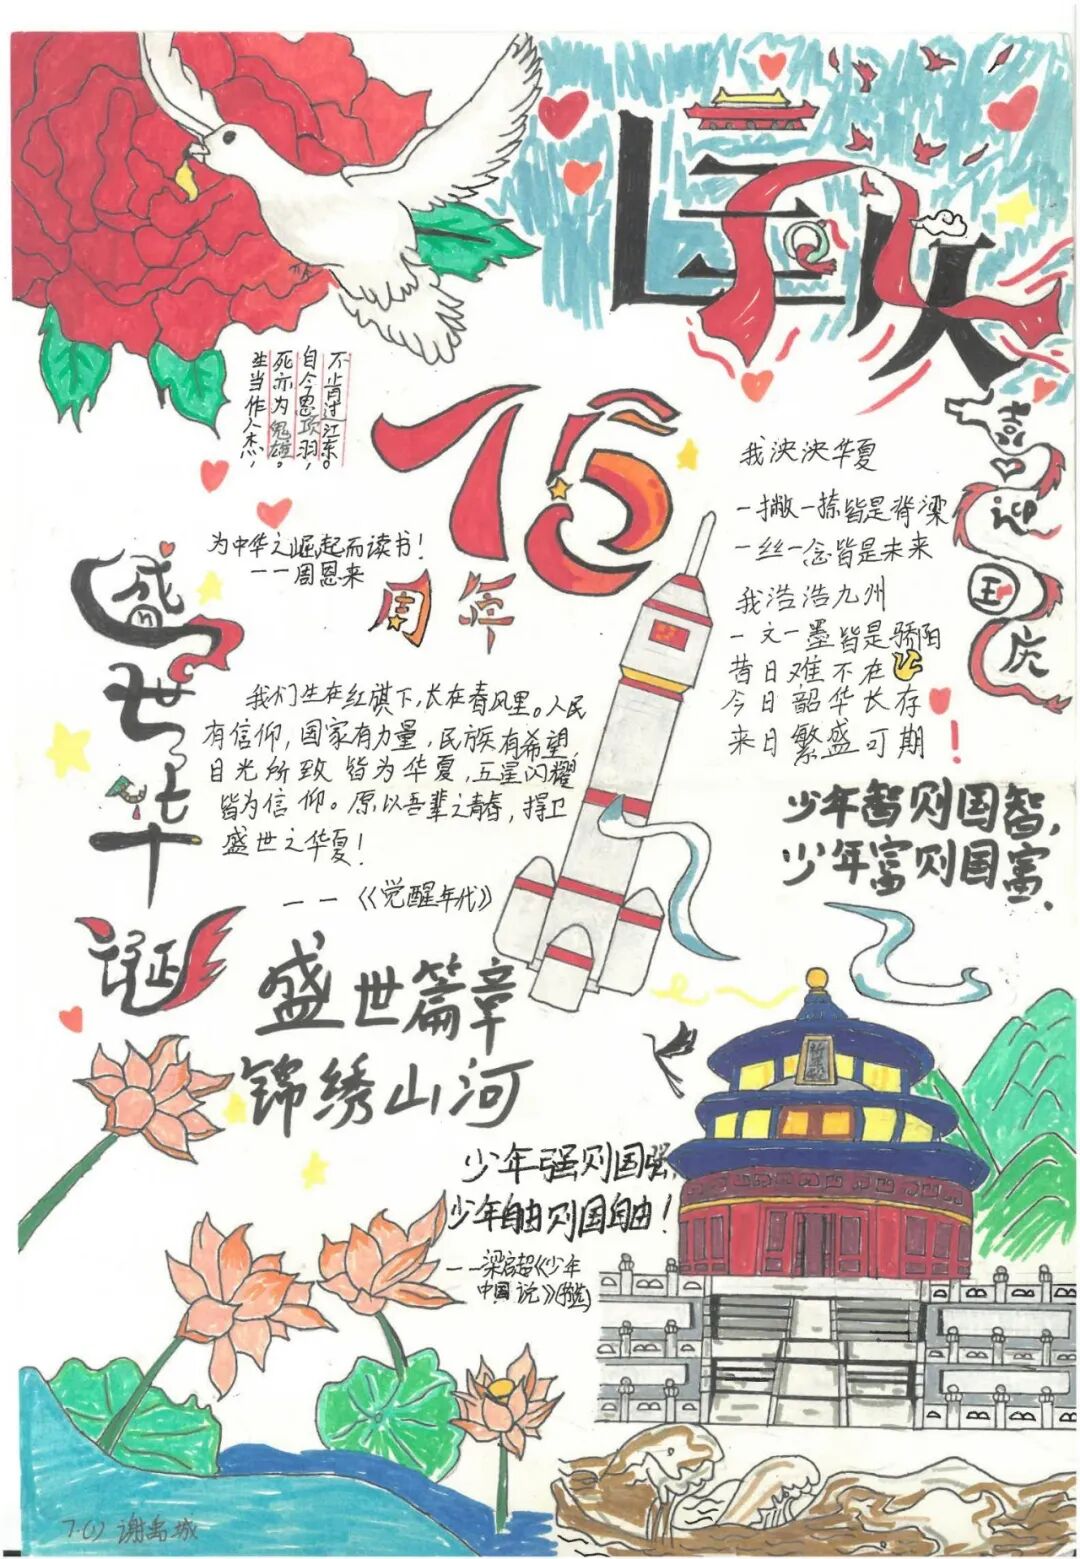 国庆
生当作人杰，
死亦为鬼雄。
自今思项羽，
不肯过江东。
75
周年
喜迎国庆
为中华之崛起而读书！
——周恩来
我泱泱华夏
一撇一捺皆是脊梁
一丝一念皆是未来
我浩浩九州
一文一墨皆是骄阳
昔日难不在
今日韶华长存
来日繁盛可期
！
盛世华诞
我们生在红旗下，长在春风里。人民
有信仰，国家有力量，民族有希望，
目光所致皆为华夏，五星闪耀
皆为信仰。原以吾辈之青春，捍卫
盛世之华夏！
——《觉醒年代》
少年智则国智，
少年富则国富，
盛世篇章
锦绣山河
少年强则国强，
少年自由则国自由！
——梁启超《少年
中国说》(节选)
祈年殿
7.(1) 谢禹城